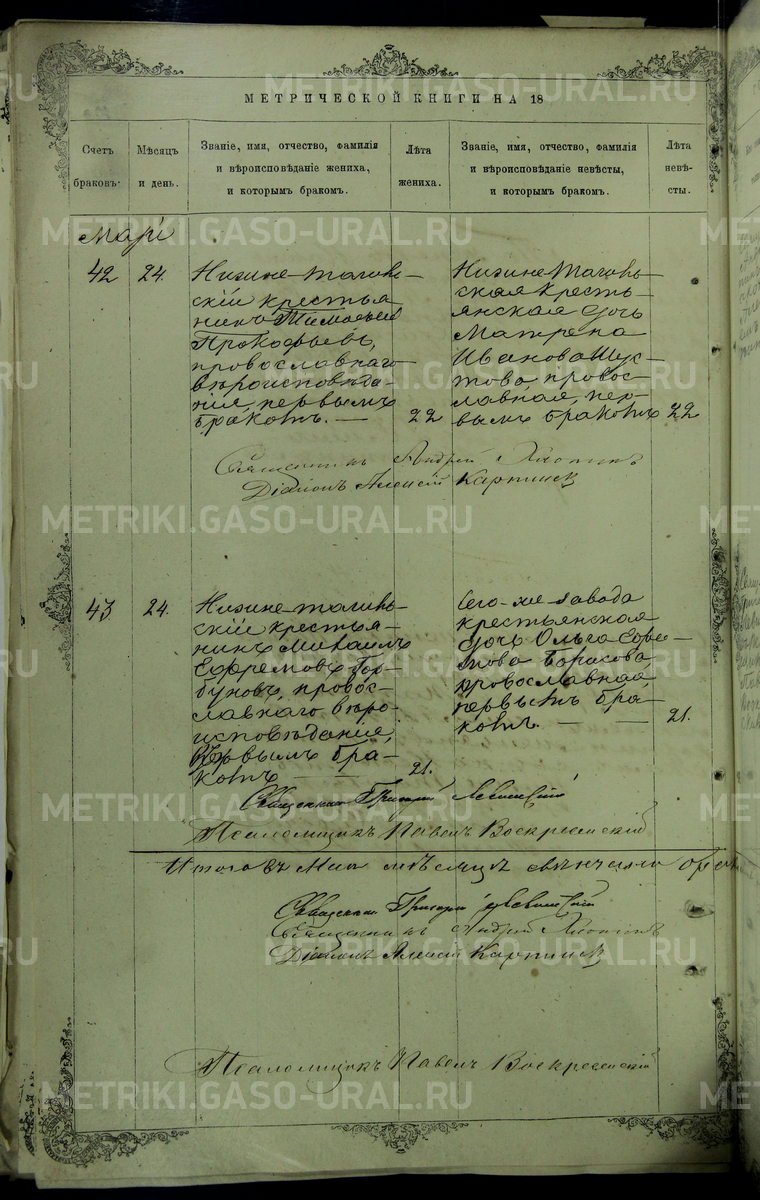 МЕТРИЧЕСКОЙ КНИГИ НА 18
Счетъ браковъ.
Мѣсяцъ и день.
Званіе, имя, отчество, фамилія и вѣроисповѣданіе жениха, и которымъ бракомъ.
Лѣта жениха.
Званіе, имя, отчество, фамилія и вѣроисповѣданіе невѣсты, и которымъ бракомъ.
Лѣта невѣ-сты.
42
24.
Нижне-тагиль-
скій крестья
нинъ Тимофей
Прокофьевъ,
провославнаго
вѣроисповѣда-
нія, первымъ
бракомъ. —
22
Нижне Тагиль-
ская кресть-
янская дочь
Матрена
Иванова Шус-
това, провос-
лавная, пер-
вымъ бракомъ
22
Священникъ Андрей
Діаконъ Алексій Карпинск
43
24.
Нижне-тагиль-
скій крестья-
нинъ Михаилъ
Ефремовъ Гор-
буновъ, провос-
лавнаго вѣро-
исповѣданія,
первымъ бра-
комъ —
21.
Сего-же завода
крестьянская
дочь Ольга
Борисова,
провославная,
первымъ бра-
комъ. —
21.
Священникъ Григорій Левитскій
Псаломщикъ Павелъ Воскресенскій
Итого въ Маѣ мѣсяцѣ
Священникъ Григорій Левитскій
Священникъ Андрей
Діаконъ Алексій Карпинск
Псаломщикъ Павелъ Воскресенскій
METRIKI.GASO-URAL.RU